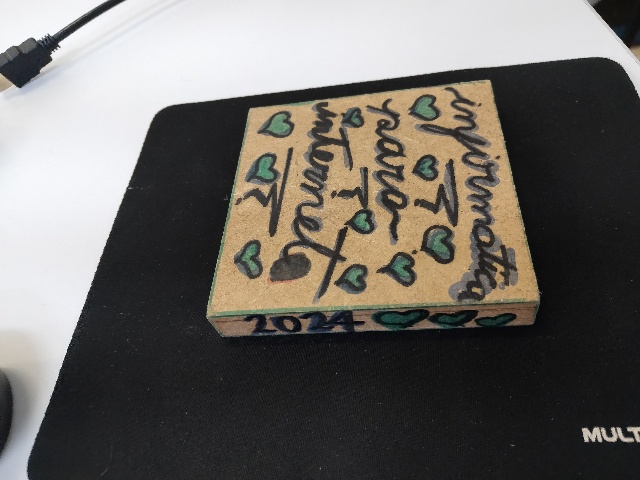 informática
para
internet
2024
MULT